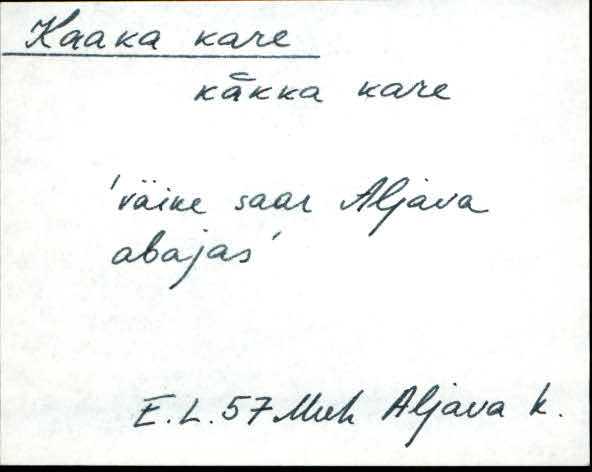 Kaaka kare
kākka kare
'väike saar Aljava
abajas'
E.L. 57 Muh Aljava k.